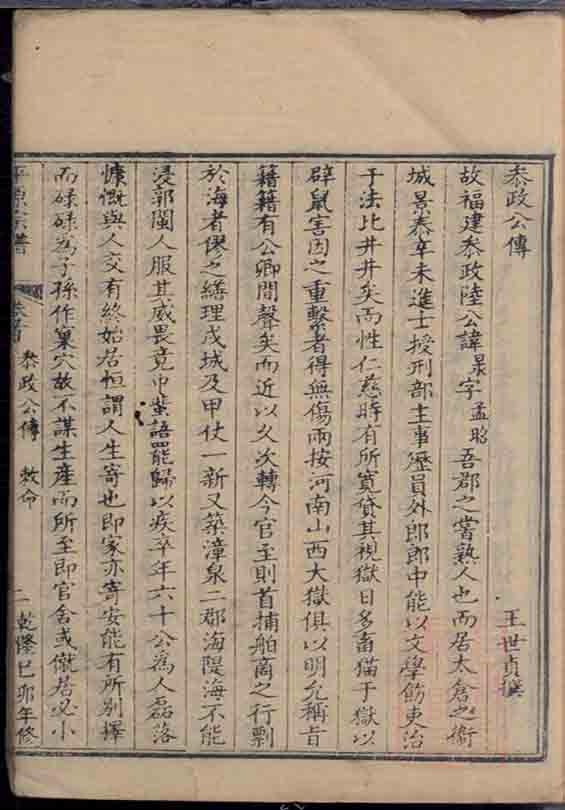 叅政公傳
王世貞撰
故福建叅政陸公諱㫤字孟昭吾郡之嘗熟人也而居太倉之衞
城景泰辛未進士授刑部主事歷員外郎郎中能以文學飭吏治
于法比井井矣而性仁慈時有所寬貸其視獄日多畜猫于獄以
辟鼠害因之重繫者得無傷兩按河南山西大獄俱以明允稱旨
籍籍有公卿間聲矣而近以久次轉今官至則首捕舶商之行剽
於海者僇之繕理戍城及甲仗一新又築漳泉二郡海隄海不能
浸郭閩人服其威畏竟中蜚語罷歸以疾卒年六十公爲人磊落
慷慨與人交有終始居恒謂人生寄也即家亦寄安能有所別擇
而碌碌爲子孫作窠穴故不謀生產而所至即官舍或僦居必小
平原宗譜
叅政公傳
敕命
二
乾隆巳卯年修